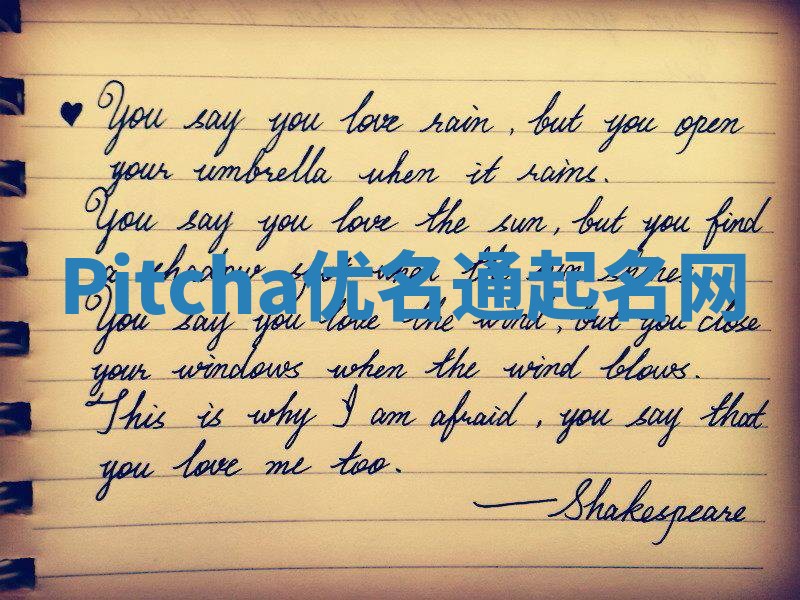 ♥ You say you love rain, but you open
your umbrella when it rains.
You say you love the sun, but you find
a shadow spot when the sun shines.
Pitcha优名通起名网
You say you love the wind, but you close
your windows when the wind blows.
This is why I am afraid, you say that
you love me too.
—Shakespeare